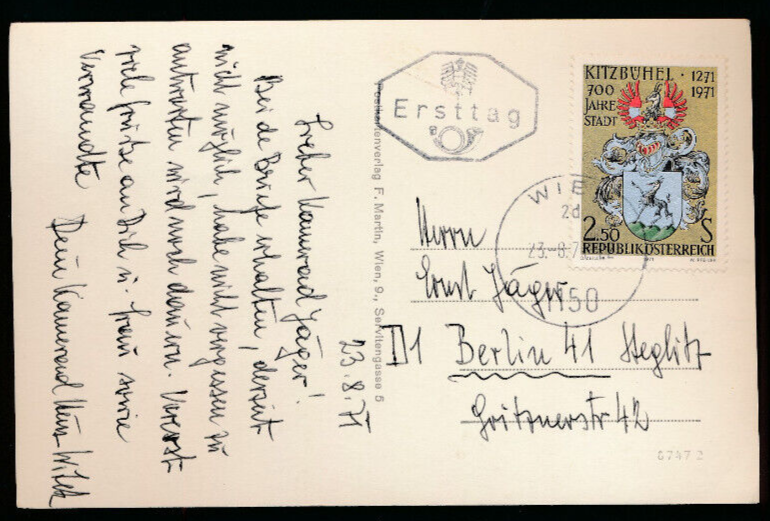 23.8.71
Lieber Kamerad Jäger!
Beide Briefe erhalten, derzeit
nicht möglich, habe nicht vergessen zu
antworten wird noch dauern. Vorerst
viele Grüße an Dich u. Frau sowie
Verwandte Dein Kamerad
Postkartenverlag F. Martin, Wien, 9., Servitengasse 5
Ersttag
KITZBÜHEL · 1271
700 1971
JAHRE
STADT
2.50 S
REPUBLIK ÖSTERREICH
WIE
23.-8.7
1150
Herrn
Ernst Jäger
D1 Berlin 41 Steglitz
Gritznerstr 42
6747 2